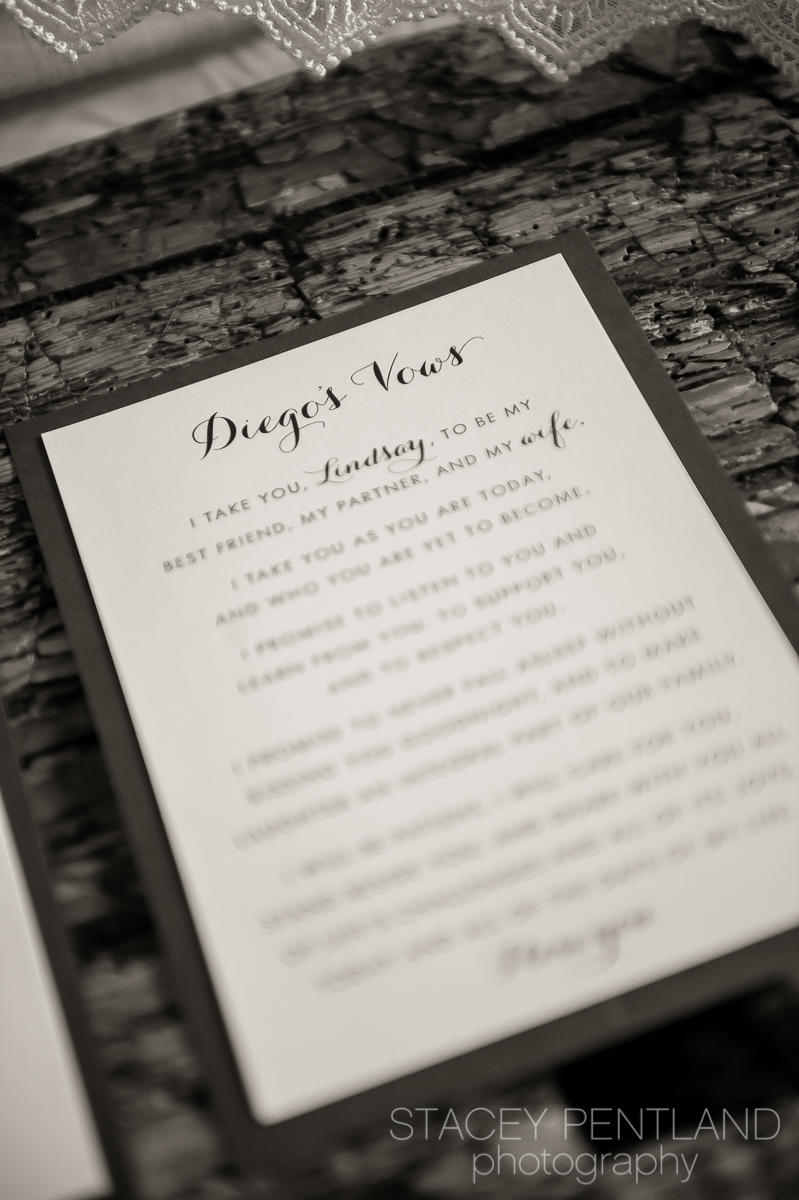 Diego's Vows
I TAKE YOU, Lindsay, TO BE MY
BEST FRIEND, MY PARTNER, AND MY wife.
I TAKE YOU AS YOU ARE TODAY,
AND WHO YOU ARE YET TO BECOME.
I PROMISE TO LISTEN TO YOU AND
LEARN FROM YOU, TO SUPPORT YOU,
AND TO RESPECT YOU.
I PROMISE TO NEVER FALL ASLEEP WITHOUT
KISSING YOU GOODNIGHT, AND TO MAKE
LAUGHTER AN INTEGRAL PART OF OUR FAMILY.
I WILL BE PATIENT, I WILL CARE FOR YOU,
STAND BESIDE YOU, AND SHARE WITH YOU ALL
OF LIFE'S CHALLENGES AND ALL OF ITS JOYS
TODAY AND ALL OF THE DAYS OF MY LIFE.
I love you
STACEY PENTLAND
photography